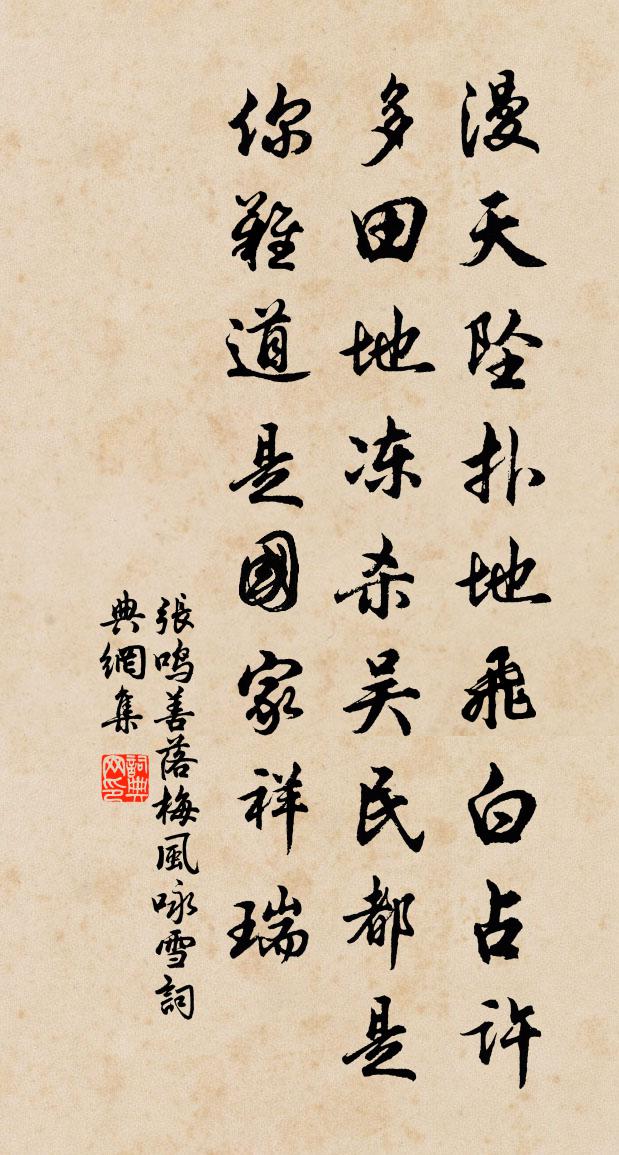 漫天坠扑地飛白占许
多田地冻杀吴民都是
你難道是國家祥瑞
張鸣善落梅風咏雪詞
典網集
詞典
网印